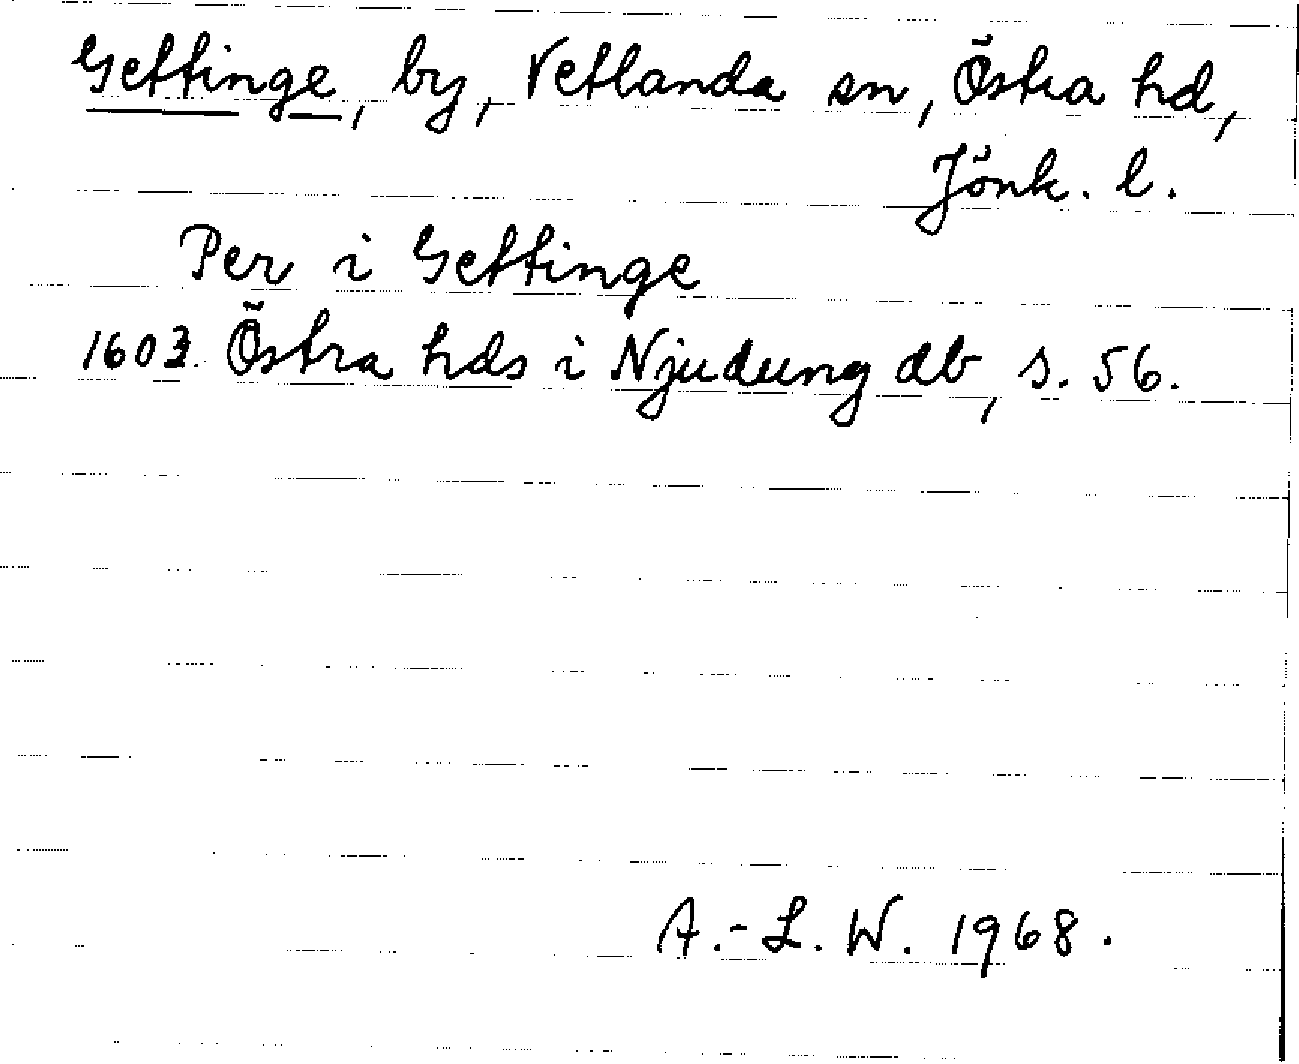 Gettinge, by, Vetlanda sn, Östra hd,
Jönk. l.
Per i Gettinge
1603. Östra hds i Njudung db, s. 56.
A.-L. W. 1968.